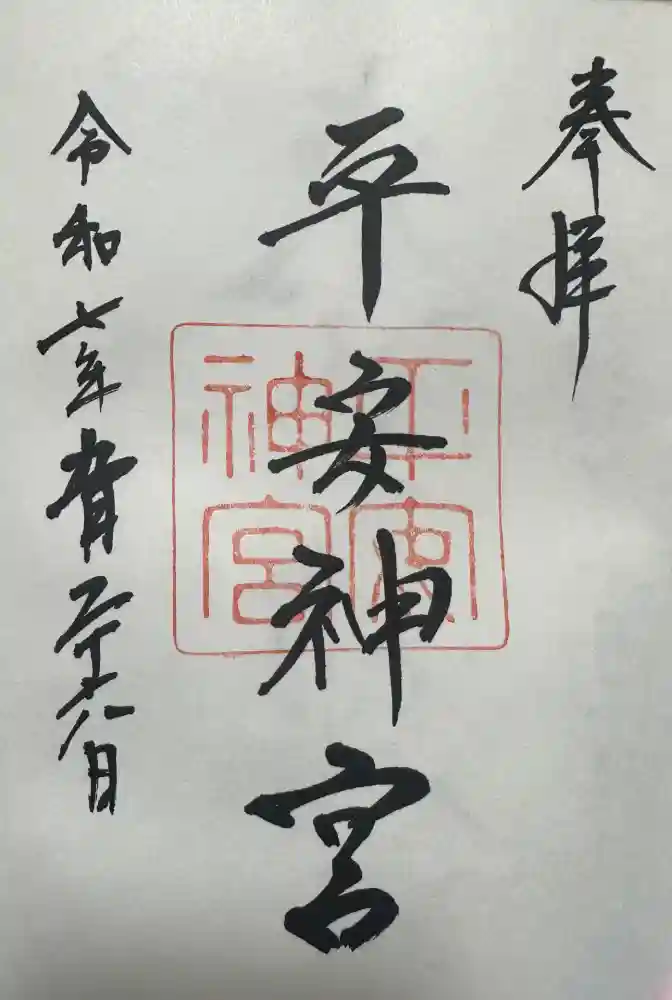 奉拝
平安神宮
平安
神宮
令和七年九月二十八日